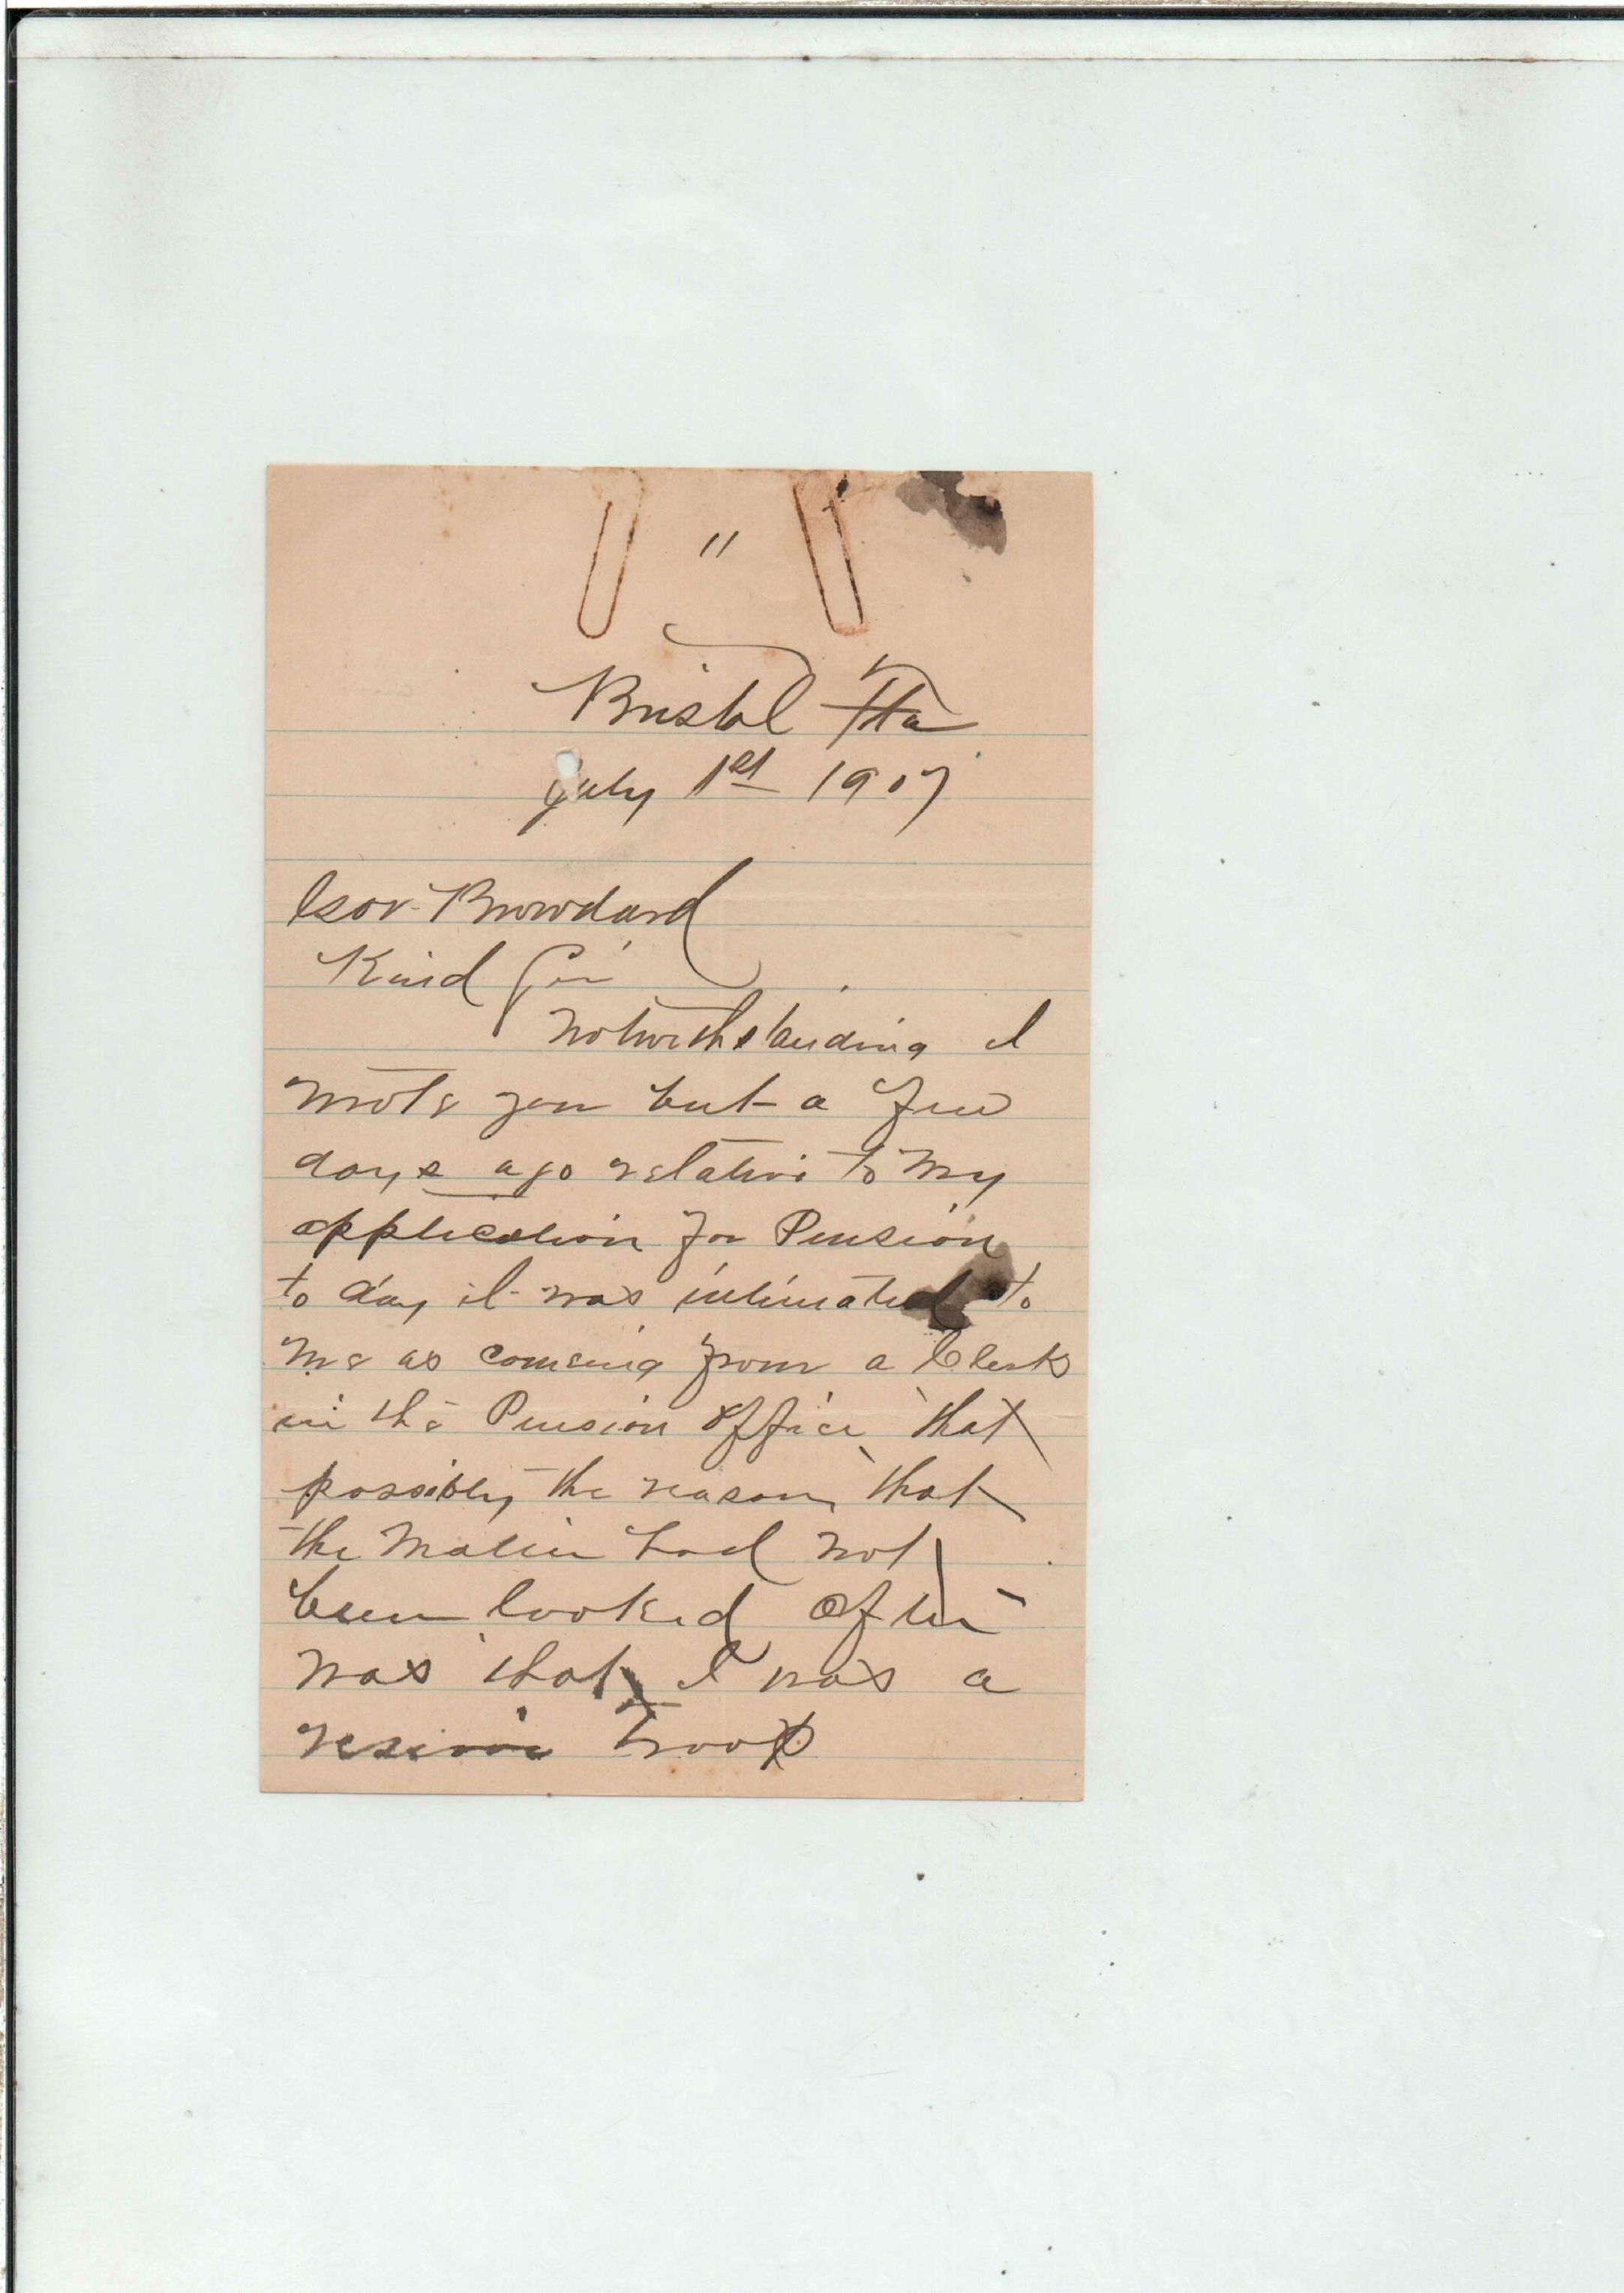 "
Bristol Fla
July 1st 1907
Gov. Broward
Kind Sir
Notwithstanding I
wrote you but a few
days ago relative to my
application for Pension
to day it was intimated to
me as comeing from a Clerk
in the Pension office that
possibly the reason that
the matter had not
been looked after
was that I was a
reserve troop